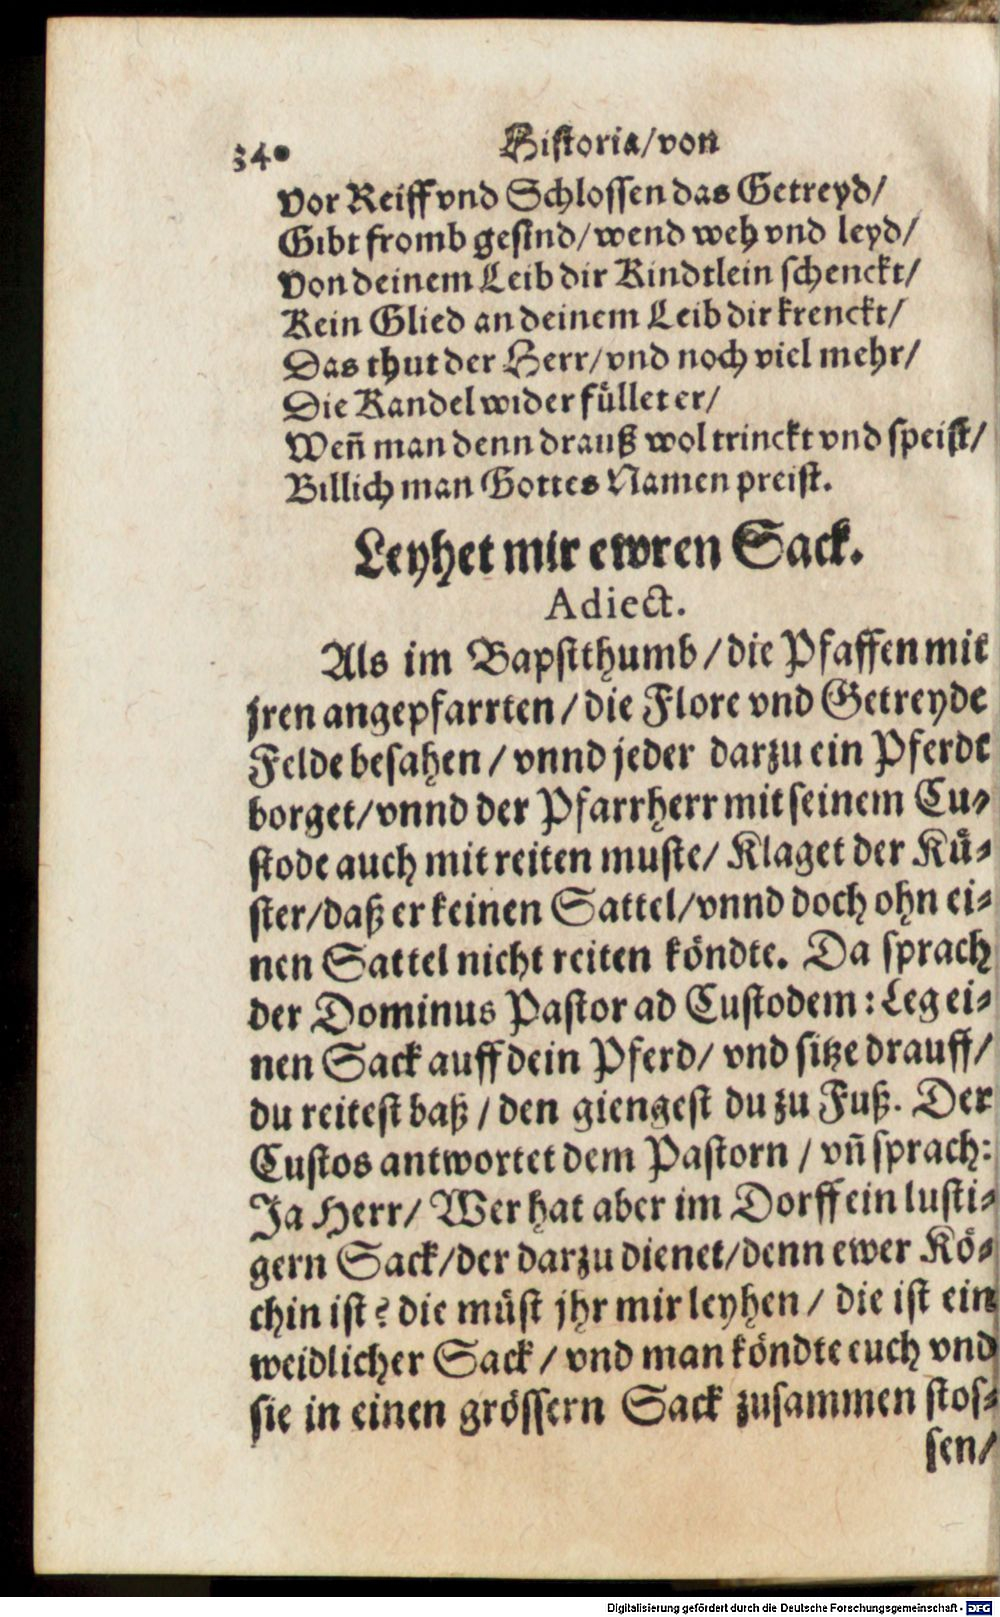 34. Historia/von
Vor Reiff vnd Schlossen das Getreyd/
Gibt fromb gesind/wend weh vnd leyd/
Von deinem Leib dir Kindtlein schenckt/
Kein Glied an deinem Leib dir krenckt/
Das thut der Herr/vnd noch viel mehr/
Die Kandel wider füllet er/
Weñ man denn drauß wol trinckt vnd speist/
Billich man Gottes Namen preist.
Leyhet mir ewren Sack.
Adiect.
Als im Bapstthumb/die Pfaffen mit
jren angepfarrten/die Flore vnd Getreyde
Felde besahen/vnnd jeder darzu ein Pferdt
borget/vnnd der Pfarrherr mit seinem Cu-
stode auch mit reiten muste/Klaget der Kü-
ster/daß er keinen Sattel/vnnd doch ohn ei-
nen Sattel nicht reiten köndte. Da sprach
der Dominus Pastor ad Custodem: Leg ei-
nen Sack auff dein Pferd/vnd sitze drauff/
du reitest baß/den giengest du zu Fuß. Der
Custos antwortet dem Pastorn/vñ sprach:
Ja Herr/Wer hat aber im Dorff ein lusti-
gern Sack/der darzu dienet/denn ewer Kö-
chin ist? die müst jhr mir leyhen/die ist ein
weidlicher Sack/vnd man köndte euch vnd
sie in einen grössern Sack zusammen stos-
sen/
Digitalisierung gefördert durch die Deutsche Forschungsgemeinschaft - DFG